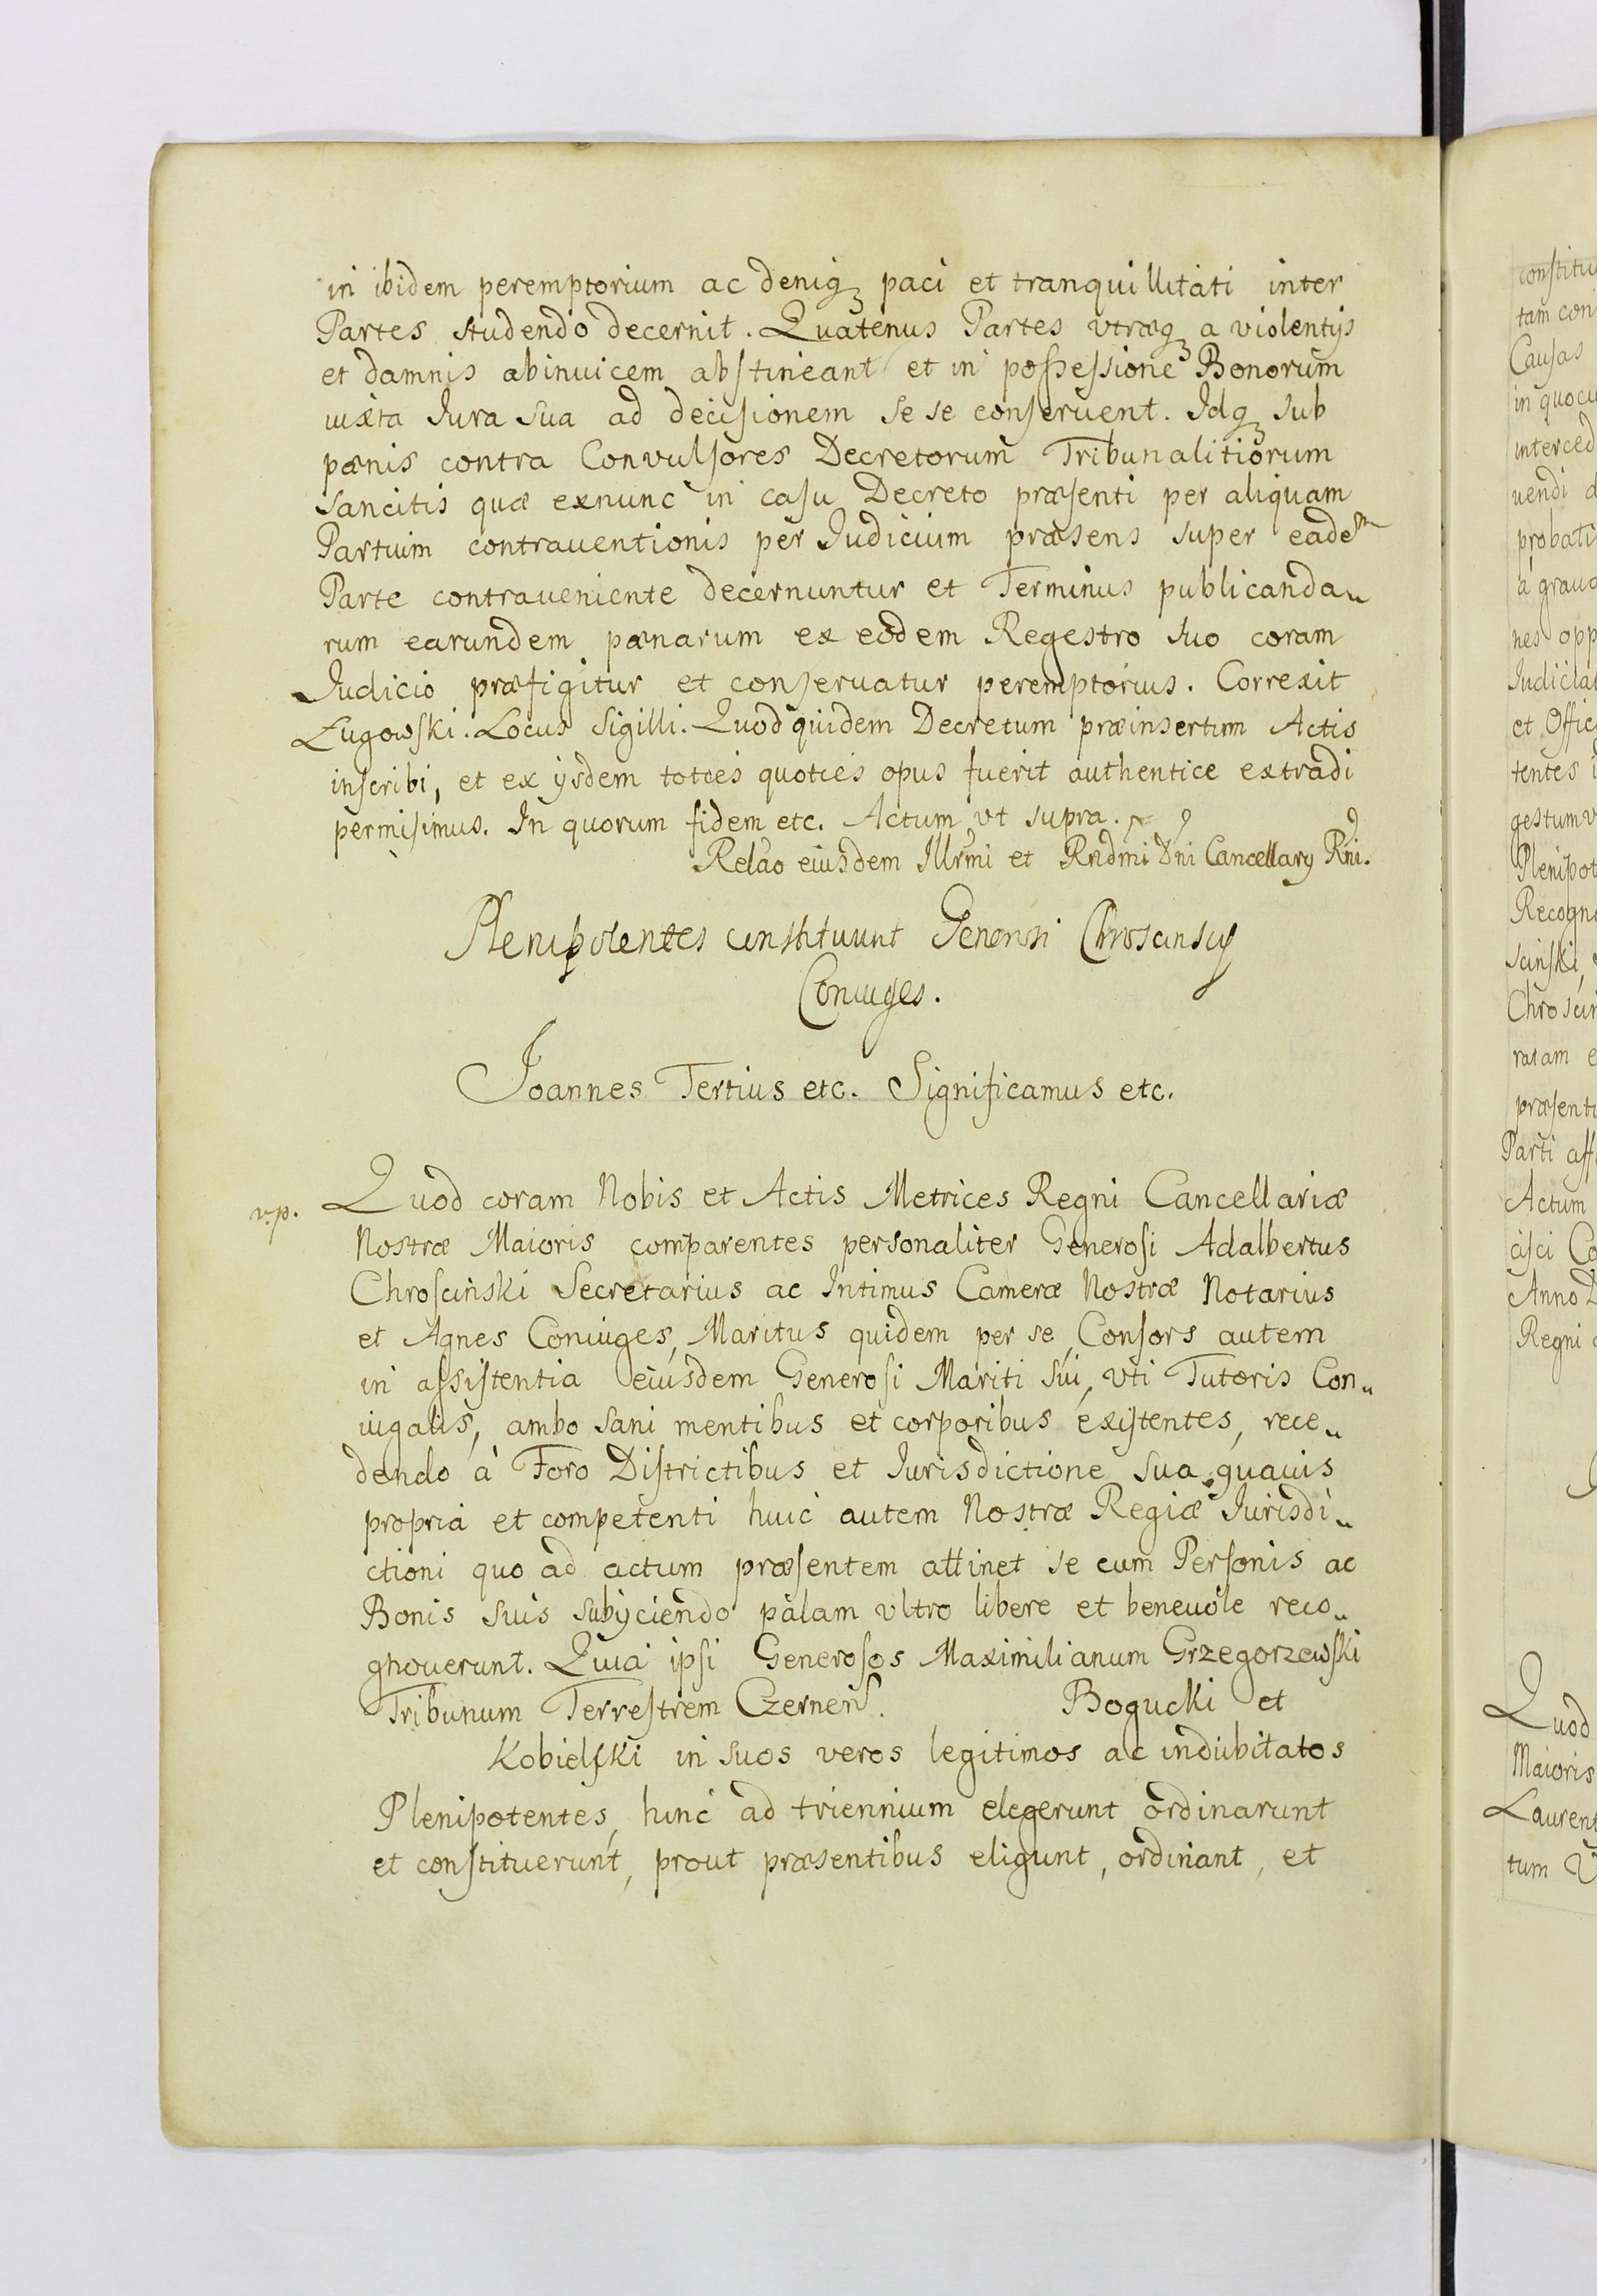 in ibidem peremptorium ac deniq; paci et tranquillitati inter
Partes studendo decernit. Quatenus Partes vtræq; a violentijs
et damnis abinuicem abstineant et in possessione Bonorum
iuxta Iura sua ad decisionem se se conseruent. Idq; sub
pænis contra Convulsores Decretorum Tribunalitiorum
sancitis quæ exnunc in casu Decreto præsenti per aliquam
Partium contrauentionis per Iudicium præsens super eadem
Parte contraueniente decernuntur et Terminus publicanda„
rum earundem pænarum ex eodem Regestro suo coram
Iudicio præfigitur et conseruatur peremptorius. Correxit
Ługowski. Locus Sigilli. Quod quidem Decretum præinsertum Actis
inscribi, et ex ijsdem toties quoties opus fuerit authentice extradi
permisimus. In quorum fidem etc. Actum vt supra.
Relao eiusdem Illrmi et Rndmi Dni Cancellary Rni.
Plenipotentes constituunt Generosi Chroscinscy
Coniuges.
Joannes Tertius etc. Significamus etc.
v.p. Quod coram Nobis et Actis Metrices Regni Cancellariæ
Nostræ Maioris comparentes personaliter Generosi Adalbertus
Chroscinski Secretarius ac Intimus Cameræ Nostræ Notarius
et Agnes Coniuges, Maritus quidem per se, Consors autem
in assistentia eiusdem Generosi Mariti sui, vti Tutoris Con„
iugalis, ambo sani mentibus et corporibus existentes, rece„
dendo à Foro Districtibus et Iurisdictione sua quauis
propria et competenti huic autem Nostræ Regiæ Iurisdi„
ctioni quo ad actum præsentem attinet se cum Personis ac
Bonis suis subijciendo palam vltro libere et beneuole reco„
gnouerunt. Quia ipsi Generosos Maximilianum Grzegorzewski
Tribunum Terrestrem Czernens. Bogucki et
Kobielski in suos veros legitimos ac indubitatos
Plenipotentes, hinc ad triennium elegerunt ordinarunt
et constituerunt, prout præsentibus eligunt, ordinant, et
constitu
tam con
Causas
in quocu
interced
uendi d
probati
à graua
nes opp
Iudicial
et Offic
tentes i
gestum v
Plenipot
Recogno
scinski,
Chroscin
ratam e
præsenti
Parti aff
Actum
cisci Co
Anno D
Regni
Quod
Maioris
Laurent
tum